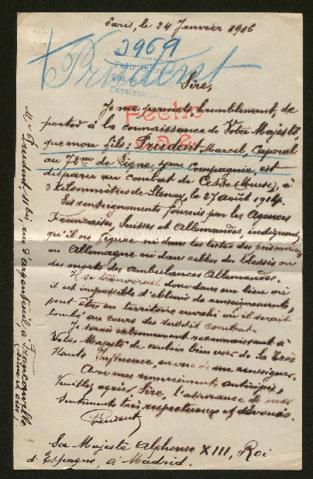 Paris, le 24 Janvier 1916
3969
Prudent
Sire,
Je me permets humblement, de
porter à la connaissance de Votre Majesté,
que mon fils: Prudent Marcel, Caporal
au 72ème de Ligne, 4ème Compagnie, est
disparu au combat de Cesse (Meuse), à
3 kilomètres de Stenay, le 27 août 1914.
Les renseignements fournis par les Agences
Françaises, Suisses et Allemandes, indiquent
qu'il ne figure ni dans les listes des prisonniers
en Allemagne ni dans celles des blessés ou
des morts des ambulances Allemandes.
Il se trouverait donc dans un lieu où
il est impossible d'obtenir de renseignements,
peut être en territoire envahi où il serait
tombé au cours du susdit combat.
Je serais extrêmement reconnaissant à
Votre Majesté de vouloir bien user de Sa Très
Haute Influence, en vue de me renseigner.
Avec mes remerciements anticipés,
Veuillez agréer, Sire, l'assurance de mes
sentiments très respectueux et dévoués.
Prudent
Sa Majesté Alphonse XIII, Roi
d'Espagne, à Madrid.
Mr Prudent, 11 bis, rue d'Argenteuil à Franconville
(Seine & Oise)